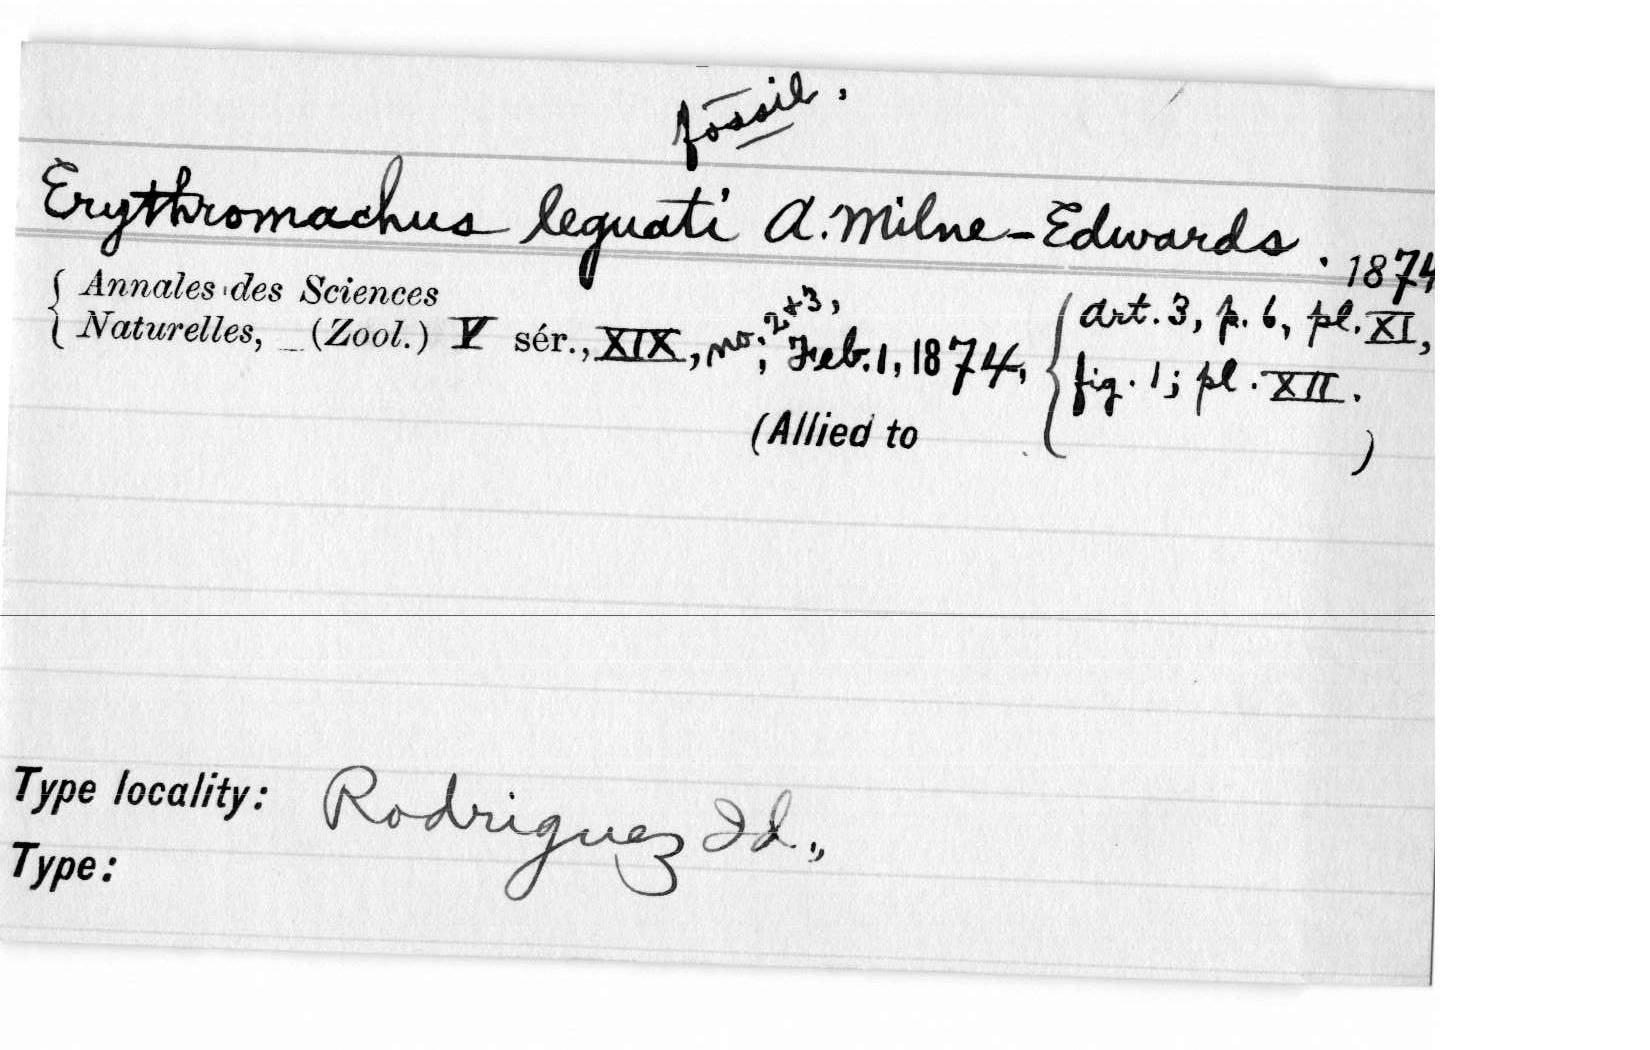 fossil.
Erythromachus leguati A. Milne-Edwards. 1874
{ Annales des Sciences
Naturelles, _ (Zool.) V sér., XIX, no. 2+3, Feb. 1, 1874, { art. 3, p. 6, pl. XI,
fig. 1; pl. XII.
(Allied to )
Type locality: Rodriguez Id.,
Type: